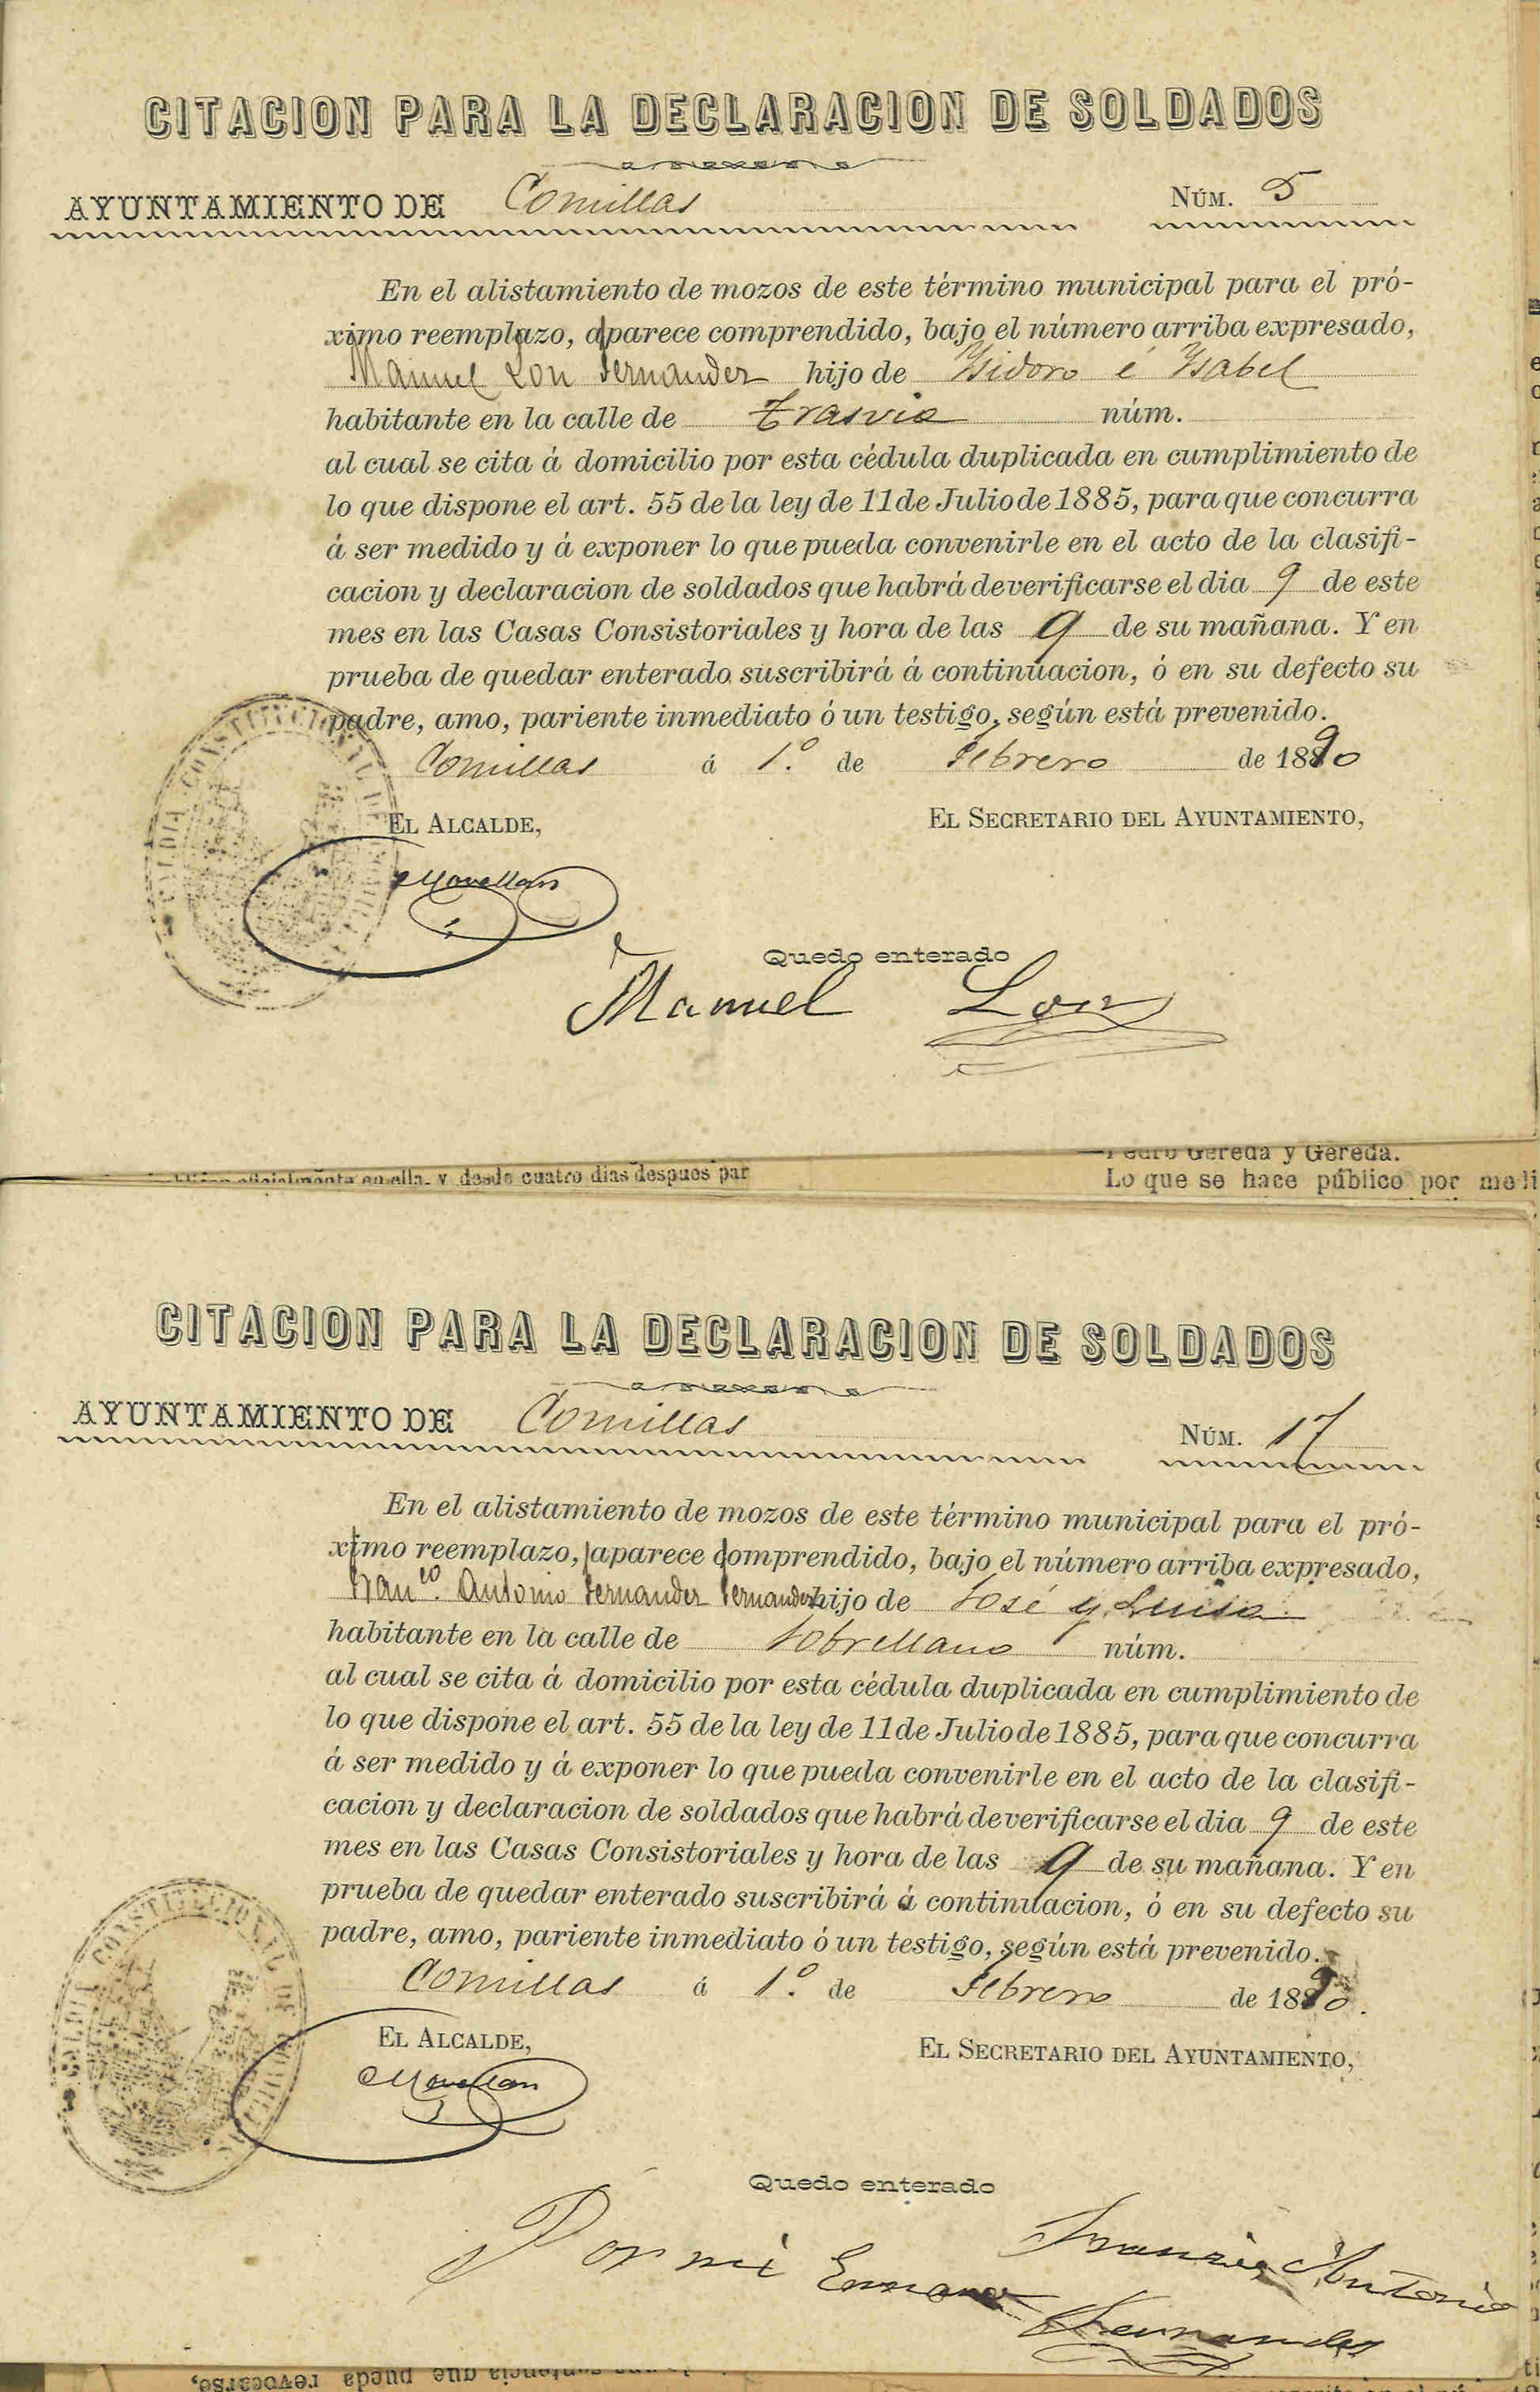 CITACION PARA LA DECLARACION DE SOLDADOS
AYUNTAMIENTO DE Comillas NÚM. 5
En el alistamiento de mozos de este término municipal para el pró-
ximo reemplazo, aparece comprendido, bajo el número arriba expresado,
Manuel Lon Fernandez hijo de Ysidoro é Ysabel
habitante en la calle de Trasvia núm.
al cual se cita á domicilio por esta cédula duplicada en cumplimiento de
lo que dispone el art. 55 de la ley de 11 de Julio de 1885, para que concurra
á ser medido y á exponer lo que pueda convenirle en el acto de la clasifi-
cacion y declaracion de soldados que habrá de verificarse el dia 9 de este
mes en las Casas Consistoriales y hora de las 9 de su mañana. Y en
prueba de quedar enterado suscribirá á continuacion, ó en su defecto su
padre, amo, pariente inmediato ó un testigo, según está prevenido.
Comillas á 1.º de Febrero de 1890
EL ALCALDE, EL SECRETARIO DEL AYUNTAMIENTO,
Movellan
Quedo enterado
Manuel Lon
cuatro dias despues par
Pedro Gereda y Gereda.
Lo que se hace público por medi
CITACION PARA LA DECLARACION DE SOLDADOS
AYUNTAMIENTO DE Comillas NÚM. 17
En el alistamiento de mozos de este término municipal para el pró-
ximo reemplazo, aparece comprendido, bajo el número arriba expresado,
Franco. Antonio Fernandez Fernandez hijo de José y Luisa
habitante en la calle de Sobrellano núm.
al cual se cita á domicilio por esta cédula duplicada en cumplimiento de
lo que dispone el art. 55 de la ley de 11 de Julio de 1885, para que concurra
á ser medido y á exponer lo que pueda convenirle en el acto de la clasifi-
cacion y declaracion de soldados que habrá de verificarse el dia 9 de este
mes en las Casas Consistoriales y hora de las 9 de su mañana. Y en
prueba de quedar enterado suscribirá á continuacion, ó en su defecto su
padre, amo, pariente inmediato ó un testigo, según está prevenido.
Comillas á 1.º de Febrero de 1890.
EL ALCALDE, EL SECRETARIO DEL AYUNTAMIENTO,
Movellan
Quedo enterado
Por mi Ermano Francisco Antonio
Fernandez
sentencia que pueda revocarse,